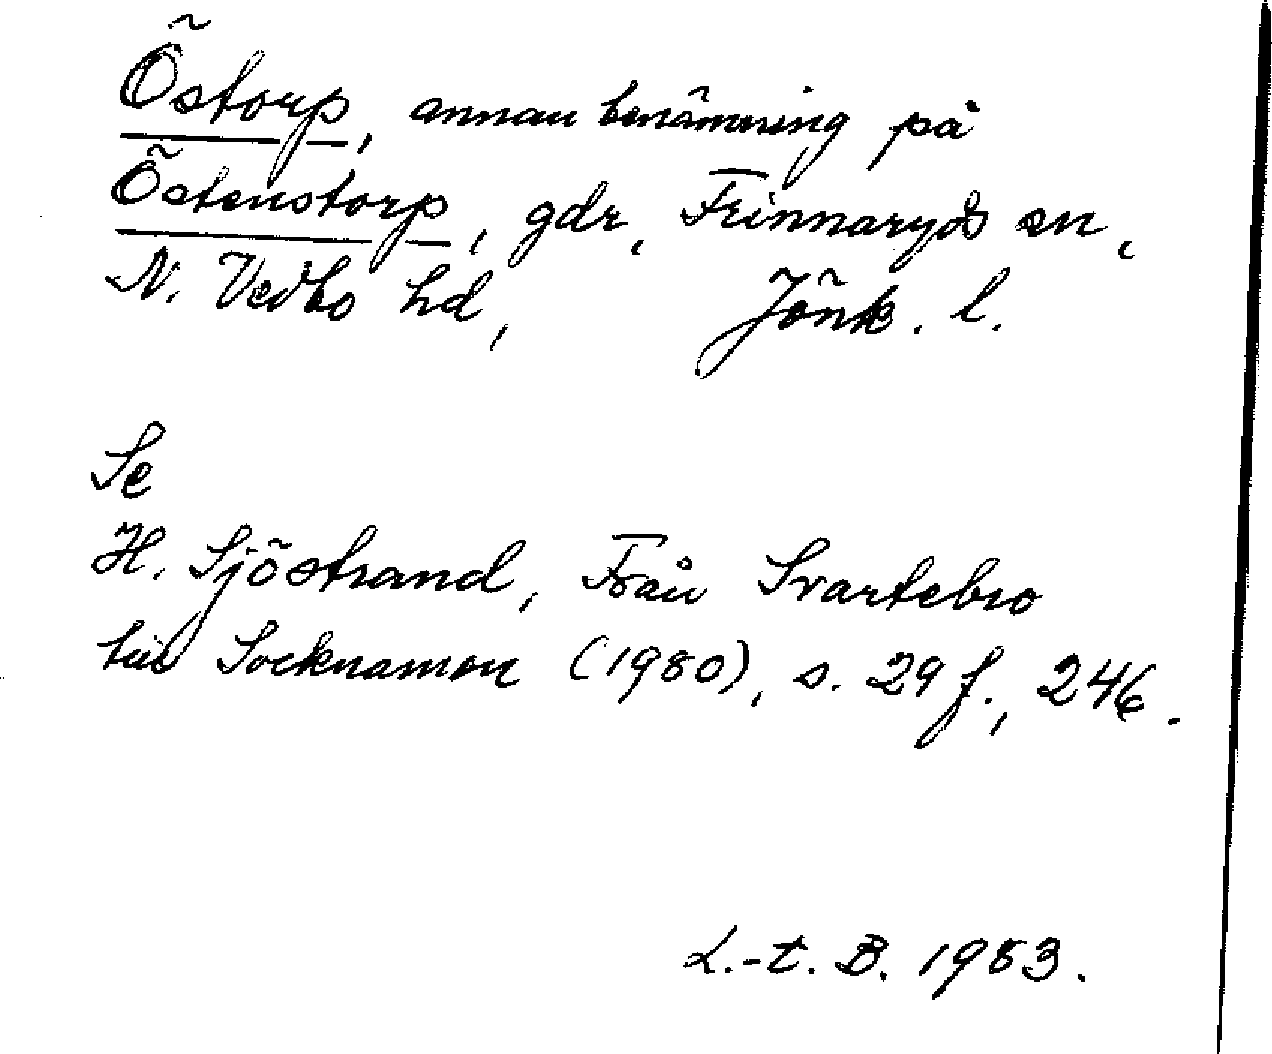 Östorp, annan benämning på
Östenstorp, gdr, Frinnaryds sn,
N. Vedbo hd, Jönk. l.
Se
H. Sjöstrand, Från Svartebro
till Socknamon (1980), s. 29 f., 246.
L.-t. B. 1983.